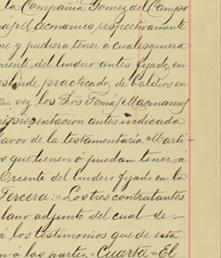 la Compañía Gomez del Campo
y Macmanus, respectivamente
que y pudiera tener ó cualesquiera
niente del lindero antes fijado, en
deslinde practicado, de baldios en
su vez, los Sres Tomás Macmanus
representacion antes indicada
favor de la testamentaria Marti-
os que tienen ó puedan tener a
Oriente del lindero fijado en la
Tercera:= Los tres contratantes
plano adjunto del cual-de-
á los testimonios que de esta
n á las partes.= Cuarta= El